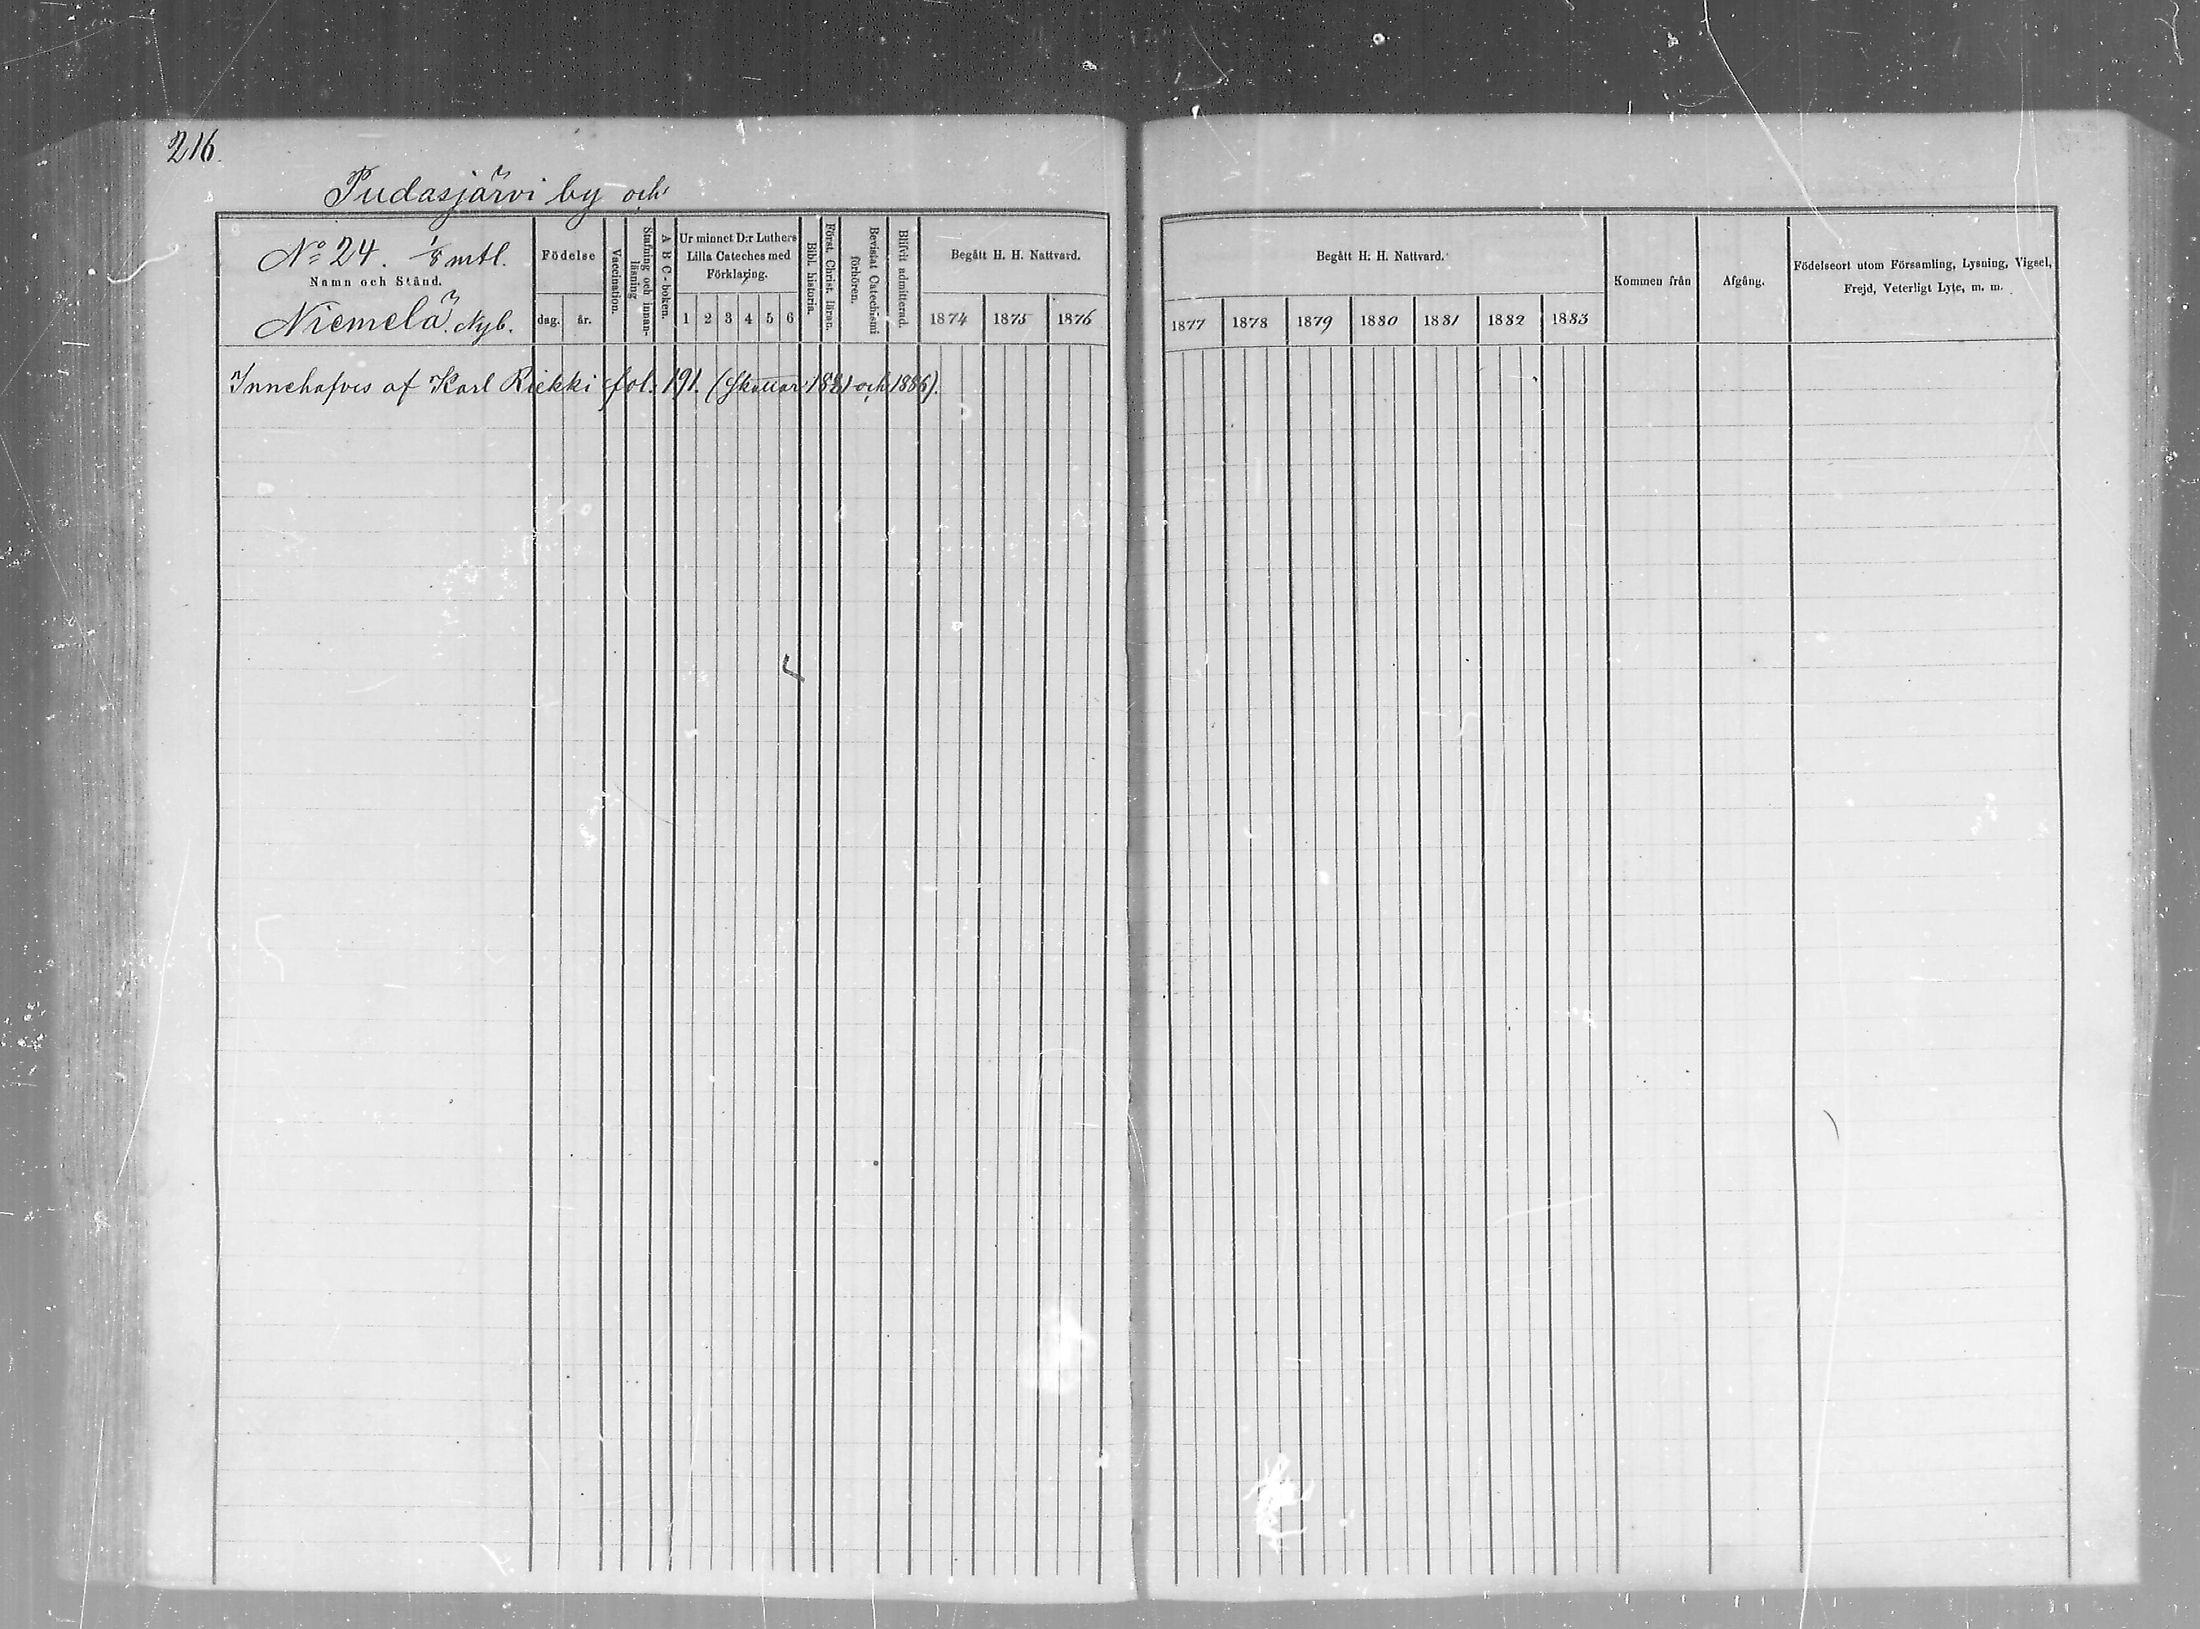 216.
Pudasjärvi by och
No 24. 1/8 mtl.
Namn och Stånd.
Niemelä. Nyb.
Födelse
dag. år.
Vaccination.
Stafning och innan-
läsning
A B C-boken.
Ur minnet D:r Luthers
Lilla Cateches med
Förklaring.
1 2 3 4 5 6
Bibl. historia.
Först. Christ. läran.
Bevistat Catechismi
förhören.
Blifvit admitterad.
Begått H. H. Nattvard.
1874 1875 1876
Innehafves af Karl Riekki fol. 191. (Skattar 1881 och 1886).
Begått H. H. Nattvard.
1877 1878 1879 1880 1881 1882 1883
Kommen från
Afgång.
Födelseort utom Församling, Lysning, Vigsel,
Frejd, Veterligt Lyte, m. m.